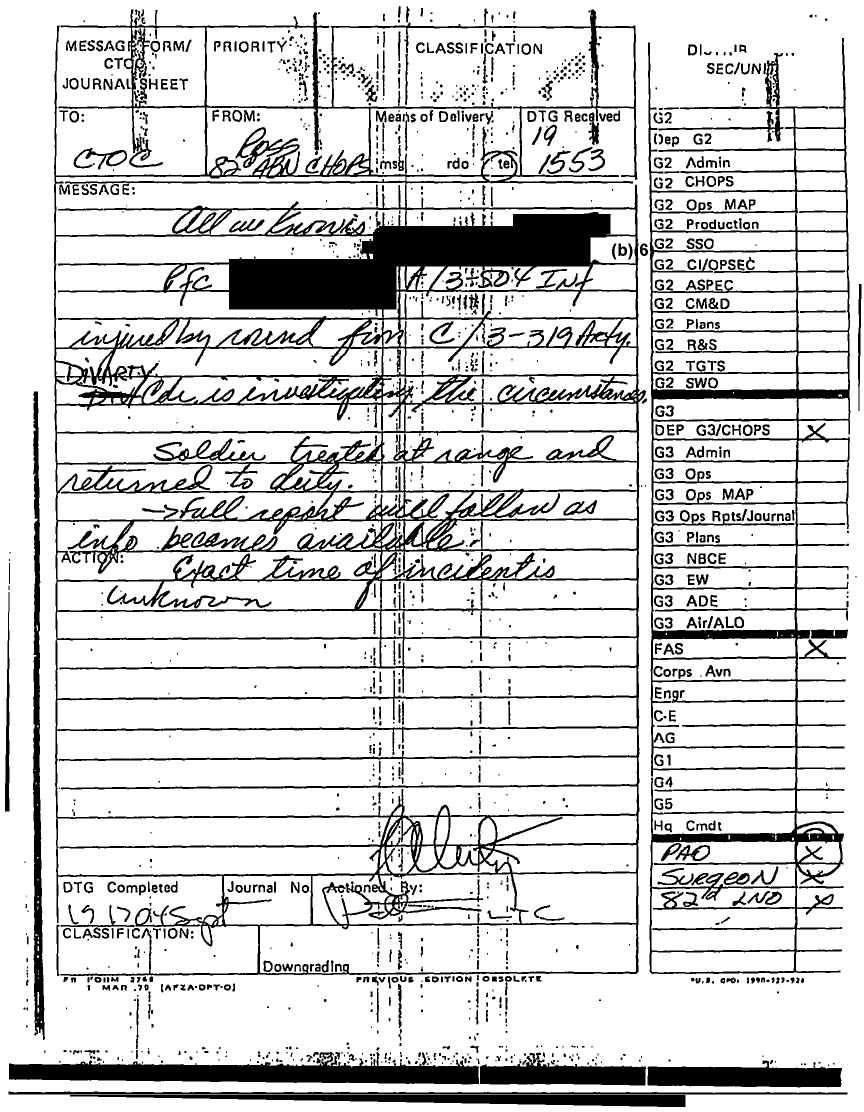 MESSAGE FORM/
CTOC
JOURNAL SHEET
PRIORITY
CLASSIFICATION
TO:
CTOC
FROM:
Ross
82d ABN CHOPS
Means of Delivery
msg rdo tel
DTG Received
19
1553
MESSAGE:
All we know is
(b)(6)
Pfc A/3-504 Inf
injured by round from C/3-319 Arty.
DIVARTY
Cdr is investigating the circumstances.
Soldier treated at range and
returned to duty.
->Full report will follow as
info becomes available.
ACTION:
Exact time of incident is
unknown
DTG Completed
191704 Sept
Journal No.
Actioned By:
LTC
CLASSIFICATION:
Downgrading
FB FORM 2748
1 MAR 79 (AFZA-DPT-O)
PREVIOUS EDITION OBSOLETE
SEC/UNIT
G2
Dep G2
G2 Admin
G2 CHOPS
G2 Ops MAP
G2 Production
G2 SSO
G2 CI/OPSEC
G2 ASPEC
G2 CM&D
G2 Plans
G2 R&S
G2 TGTS
G2 SWO
G3
DEP G3/CHOPS X
G3 Admin
G3 Ops
G3 Ops MAP
G3 Ops Rpts/Journal
G3 Plans
G3 NBCE
G3 EW
G3 ADE
G3 Air/ALO
FAS X
Corps Avn
Engr
C-E
AG
G1
G4
G5
Hq Cmdt
PAO X
SURGEON X
82d LNO X
*U.S. GPO: 1990-727-926